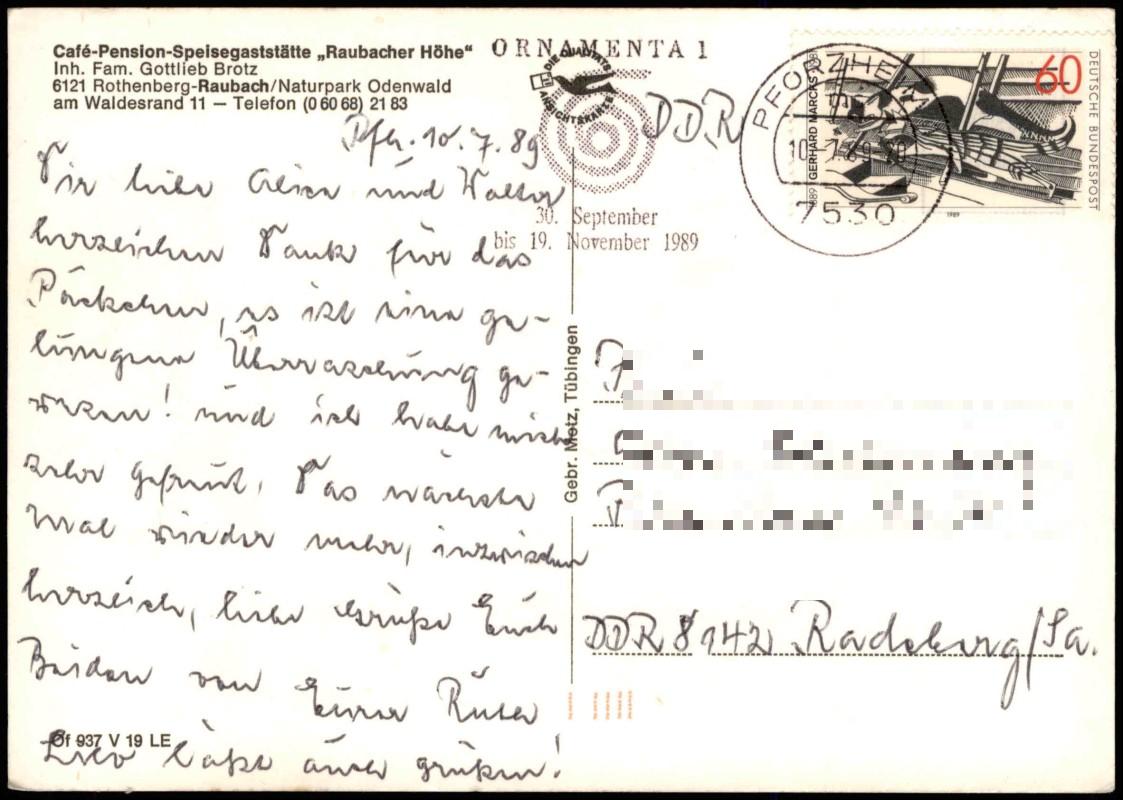 Café-Pension-Speisegaststätte „Raubacher Höhe“
Inh. Fam. Gottlieb Brotz
6121 Rothenberg-Raubach/Naturpark Odenwald
am Waldesrand 11 — Telefon (0 60 68) 21 83
ORNAMENTA 1
DIE QUALITÄTS
ANSICHTSKARTE
30. September
bis 19. November 1989
DDR
PFORZHEIM
10.-7.89-20
7530
60
DEUTSCHE BUNDESPOST
GERHARD MARCKS
1889
1989
Pfh. 10.7.89
Ihr liebe und Walter
herzlichen Dank für das
Päckchen, es ist eine ge-
lungene Überraschung ge-
wesen! und ich habe mich
sehr gefreut. Das nächste
Mal wieder mehr, inzwischen
herzlich, liebe Grüße Euch
Beiden von Eurer Ruth
läßt auch grüßen!
Gebr. Metz, Tübingen
DDR 8142 Radeberg/Sa.
Of 937 V 19 LE